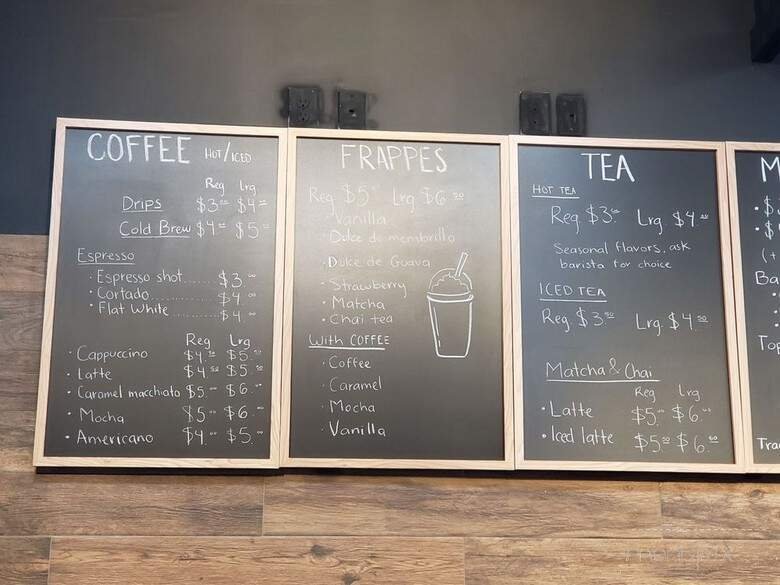 COFFEE HOT/ICED
Reg Lrg
Drips $3.00 $4.00
Cold Brew $4.00 $5.00
Espresso
· Espresso shot........$3.00
· Cortado................$4.00
· Flat White............$4.00
Reg Lrg
· Cappuccino $4.50 $5.50
· Latte $4.50 $5.50
· Caramel macchiato $5.00 $6.00
· Mocha $5.00 $6.00
· Americano $4.00 $5.00
FRAPPES
Reg $5 Lrg $6.50
· Vanilla
· Dulce de membrillo
· Dulce de Guava
· Strawberry
· Matcha
· Chai tea
With COFFEE
· Coffee
· Caramel
· Mocha
· Vanilla
TEA
HOT TEA
Reg $3.50 Lrg $4.00
Seasonal flavors, ask
barista for choice
ICED TEA
Reg $3.50 Lrg $4.50
Matcha & Chai
Reg Lrg
· Latte $5.00 $6.00
· Iced latte $5.50 $6.50
M
· $
· $
(+
Ba
Top
Tra